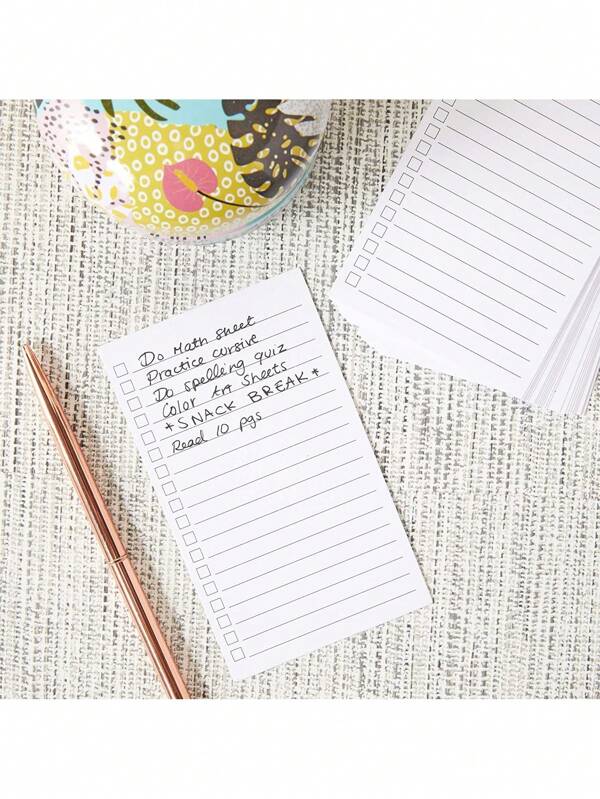 Do Math sheet
Practice cursive
Do spelling quiz
Color Art Sheets
*SNACK BREAK*
Read 10 pgs